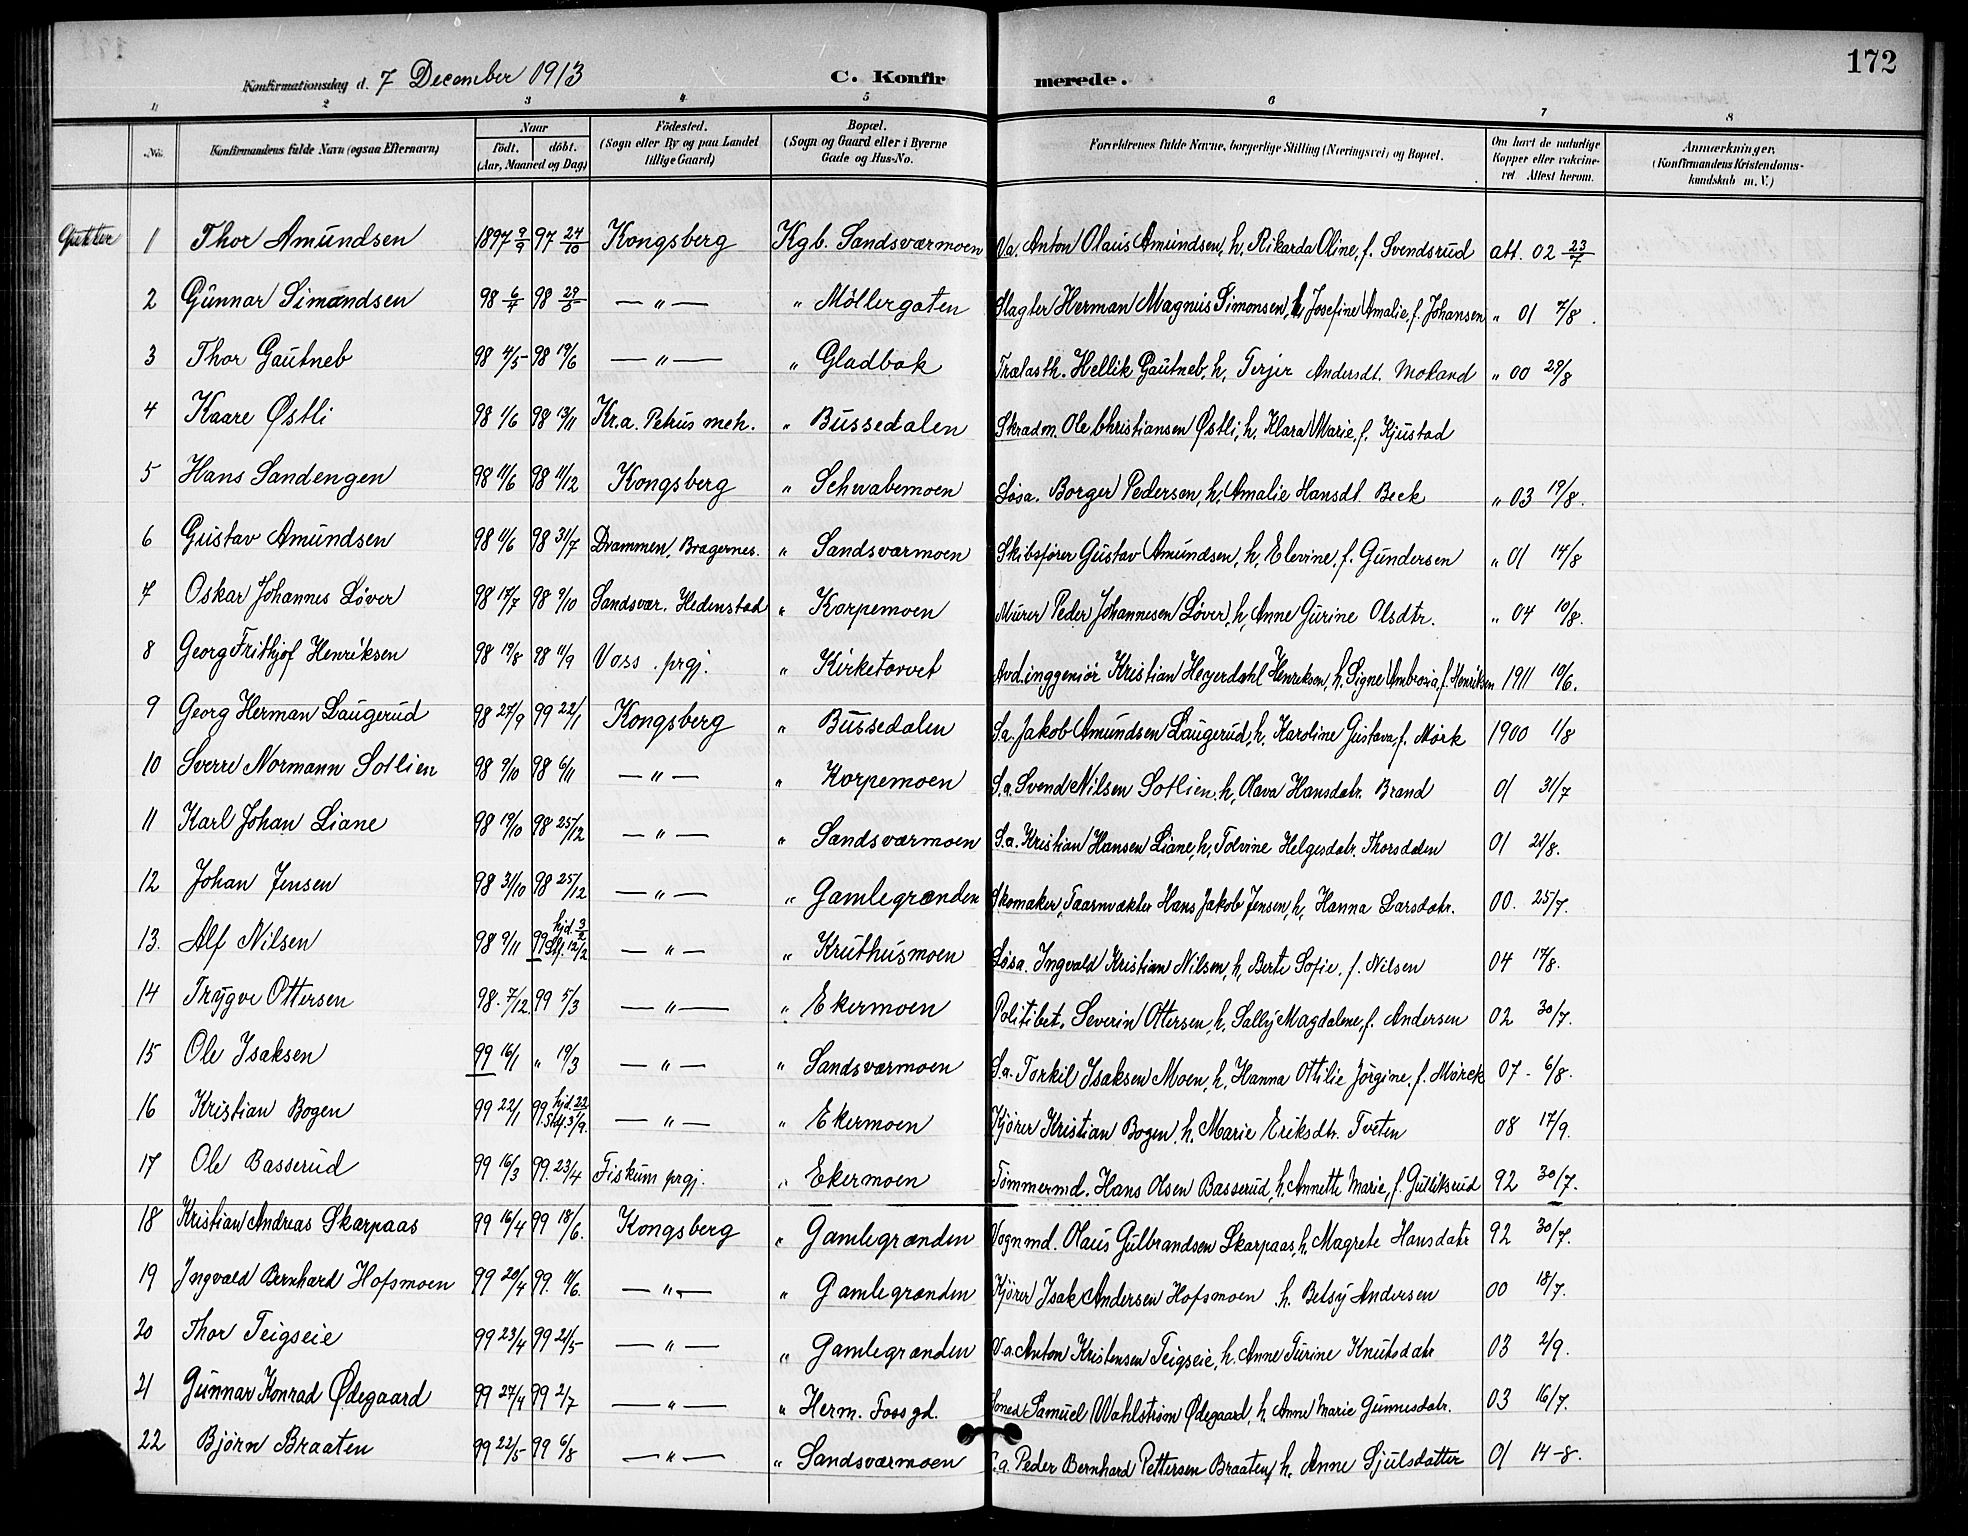 172
Konfirmationsdag d. 7 December 1913 C. Konfirmerede.
1 2 3 4 5 6 7 8
No. Konfirmandens fulde Navn (ogsaa Efternavn) Naar födt. döbt. (Aar, Maaned og Dag) Födested. (Sogn eller By og paa Landet tillige Gaard) Bopæl. (Sogn og Gaard eller i Byerne Gade og Hus-No. Forældrenes fulde Navne, borgerlige Stilling (Næringsvei) og Bopæl. Om havt de naturlige Kopper eller vakcineret Attest herom. Anmærkninger. (Konfirmandens Kristendomskundskab m. V.)
Gutter 1 Thor Amundsen 1897 9/9 97 24/10 Kongsberg Kgb. Sandsværmoen Va. Anton Olaus Amundsen, h. Rikarda Oline, f. Svendsrud att. 02 23/7
2 Gunnar Simondsen 98 6/4 98 29/5 — " — " Möllergaten Slagter Herman Magnus Simonsen, h. Josefine Amalie, f. Johansen " 01 7/8.
3 Thor Gautneb 98 4/5 98 19/6 — " — " Gladbak Trælasth. Hellik Gautneb, h. Terjer Andersdt. Moland " 00 29/8
4 Kaare Østli 98 1/6 98 13/11 Kr.a. Petrus meh. " Bussedalen Skradm. Ole Christiansen Østli, h. Klara Marie, f. Kjustad
5 Hans Sandengen 98 11/6 98 11/12 Kongsberg " Schwabemoen Løsa. Borger Pedersen, h. Amalie Hansdt. Beck " 03 19/8.
6 Gustav Amundsen 98 11/6 98 31/7 Drammen, Bragernes. " Sandsværmoen Skibsfører Gustav Amundsen, h. Elevine, f. Gundersen " 01 14/8
7 Oskar Johannes Løver 98 17/7 98 9/10 Sandsvær. Hedenstad " Korpemoen Murer Peder Johannesen Løver, h. Anne Gurine Olsdtr. " 04 10/8.
8 Georg Frithjof Henriksen 98 19/8 98 11/9 Voss. prgj. " Kirketorvet Avd.inggeniör Kristian Heyerdahl Henriksen, h. Signe Ambrosia, f. Henriksen 1911 10/6.
9 Georg Herman Laugerud 98 27/9 99 22/1 Kongsberg " Bussedalen Sa. Jakob Amundsen Laugerud, h. Karoline Gustava, f. Mörk 1900 1/8
10 Sverre Normann Sotlien 98 9/10 98 6/11 — " — " Korpemoen S.a. Svend Nilsen Sotlien, h. Olava Hansdatr. Brand 01 31/7
11 Karl Johan Liane 98 19/10 98 25/12 — " — " Sandsværmoen S.a. Kristian Hansen Liane, h. Tolvine Helgesdatr. Thorsdalen 01 21/8.
12 Johan Jensen 98 31/10 98 25/12 — " — " Gamlegrænden Skomaker, Taarnvækter Hans Jakob Jensen, h. Hanna Larsdatr. 00. 25/7.
13. Alf Nilsen 98 9/11 99 hjd. 3/2 Stf. 12/2 — " — " Kruthusmoen Løsa. Ingvald Kristian Nilsen, h. Berte Sofie, f. Nilsen 04 17/8.
14 Trygve Ottersen 98. 7/12. 99 5/3 — " — " Ekermoen Politibet. Severin Ottersen, h. Sally Magdalene, f. Andersen 02 30/7.
15 Ole Isaksen 99 16/1 " 19/3 — " — " Sandsværmoen S.a. Torkil Isaksen Moen, h. Hanna Ottilie Jörgine. f. Mörck 07 - 6/8.
16 Kristian Bogen 99 22/1 99. hjd. 22/1 Stf. 3/9. — " — " Ekermoen Kjörer Kristian Bogen, h. Marie Eriksdtr. Tveten 08 17/9.
17 Ole Basserud 99 16/3 99. 23/4 Fiskum prgj. " Ekermoen Tömmermd. Hans Olsen Basserud, h. Annette Marie, f. Gulliksrud 92 30/7.
18 Kristian Andreas Skarpaas 99 16/4 99 18/6. Kongsberg " Gamlegrænden Vognmd. Olaus Gulbrandsen Skarpaas, h. Magrete Hansdatr 92 30/7.
19 Ingvald Bernhard Hofsmoen 99 20/4 99. 11/6. — " — " Gamlegrænden Kjörer Isak Andersen Hofsmoen h. Betsy Andersen 00 18/7.
20 Thor Teigseie 99 23/4 99 21/5 — " — " Gamlegrænden V.a. Anton Kristensen Teigseie, h. Anne Turine Knutsdatr 03 2/9.
21 Gunnar Konrad Ødegaard 99 27/4 99 2/7 — " — " Herm. Fossgd. Samuel Wahlström Ødegaard, h. Anne Marie Gunnesdatr. 03 16/7.
22 Bjørn Braaten 99 22/5 99 6/8 — " — " Sandsværmoen S.a. Peder Bernhard Pettersen Braaten, h. Anne Sjulsdatter 01 14-8.